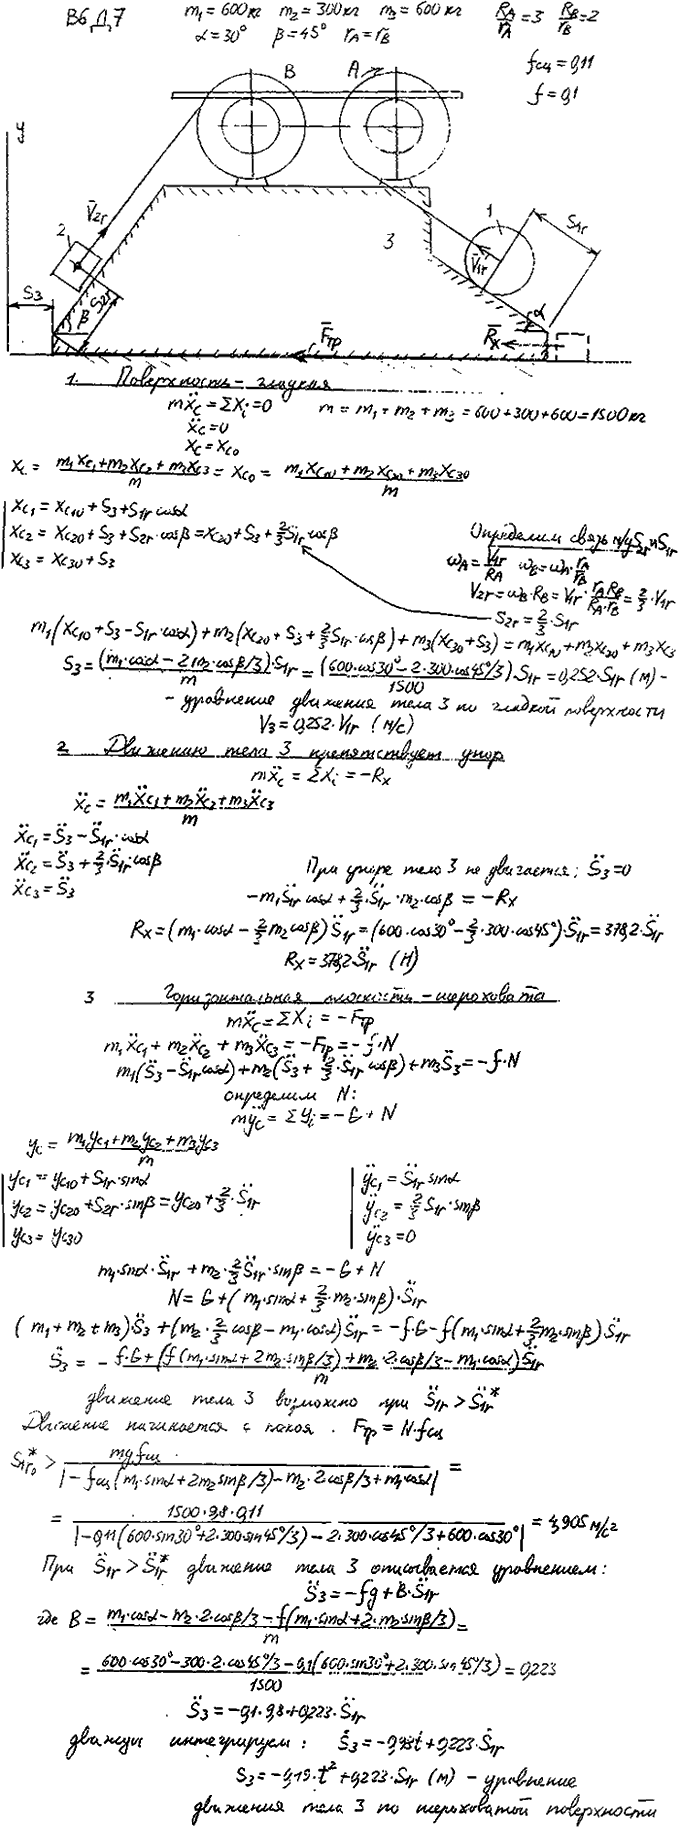 В6 Д7 m₁=600кг m₂=300кг m₃=600кг R_A/r_A=3 R_B/r_B=2
α=30° β=45° r_A=r_B
f_сц=0,11
f=0,1
B A
y
V̄₂r
2
1
S₁r
3
V̄₁r
S₃
S₂r
β
α
F̄тр
R̄x
1. Поверхность - гладкая
mẍc=ΣXi=0 m=m₁+m₂+m₃=600+300+600=1500кг
ẍc=0
xc=xc₀
xc = (m₁xc₁+m₂xc₂+m₃xc₃)/m = xc₀ = (m₁xc₁₀+m₂xc₂₀+m₃xc₃₀)/m
xc₁=xc₁₀+S₃+S₁r cosα
xc₂=xc₂₀+S₃+S₂r·cosβ=xc₂₀+S₃+2/3 S₁r cosβ
xc₃=xc₃₀+S₃
Определим связь м/у S₂r и S₁r
ω_A=V₁r/R_A ω_B=ω_A·r_A/r_B
V₂r=ω_B·R_B=V₁r·(r_A R_B)/(R_A·r_B)=2/3·V₁r
S₂r=2/3·S₁r
m₁(xc₁₀+S₃-S₁r cosα)+m₂(xc₂₀+S₃+2/3 S₁r·cosβ)+m₃(xc₃₀+S₃)=m₁xc₁₀+m₂xc₂₀+m₃xc₃
S₃=(m₁·cosα-2m₂·cosβ/3)/m·S₁r=(600·cos30°-2·300·cos45°/3)/1500·S₁r=0,252·S₁r (м)-
- уравнение движения тела 3 по гладкой поверхности
V₃=0,252·V₁r (м/с)
2 Движению тела 3 препятствует упор
mẍc = ΣXi = -Rx
ẍc = (m₁ẍc₁+m₂ẍc₂+m₃ẍc₃)/m
ẍc₁=S̈₃-S̈₁r·cosα
ẍc₂=S̈₃+2/3·S̈₁r·cosβ
ẍc₃=S̈₃
При упоре тело 3 не двигается; S̈₃=0
-m₁S̈₁r cosα+2/3·S̈₁r·m₂·cosβ = -Rx
Rx=(m₁·cosα-2/3 m₂cosβ)S̈₁r=(600·cos30°-2/3·300·cos45°)·S̈₁r=378,2·S̈₁r
Rx=378,2·S̈₁r (Н)
3 Горизонтальная плоскость - шероховата
mẍc=ΣXi=-Fтр
m₁ẍc₁+m₂ẍc₂+m₃ẍc₃=-Fтр=-f·N
m₁(S̈₃-S̈₁r cosα)+m₂(S̈₃+2/3·S̈₁r cosβ)+m₃S̈₃=-f·N
определим N:
mÿc=ΣYi=-G+N
yc=(m₁yc₁+m₂yc₂+m₃yc₃)/m
yc₁=yc₁₀+S₁r·sinα
yc₂=yc₂₀+S₂r·sinβ=yc₂₀+2/3·S̈₁r
yc₃=yc₃₀
ÿc₁=S̈₁r sinα
ÿc₂=2/3 S₁r·sinβ
ÿc₃=0
m₁·sinα·S̈₁r+m₂·2/3 S̈₁r·sinβ=-G+N
N=G+(m₁·sinα+2/3·m₂·sinβ)·S̈₁r
(m₁+m₂+m₃)S̈₃+(m₂·2/3 cosβ-m₁·cosα)S̈₁r=-f·G-f(m₁·sinα+2/3 m₂·sinβ)S̈₁r
S̈₃=-(f·G+(f(m₁·sinα+2m₂·sinβ/3)+m₂·2·cosβ/3-m₁·cosα)S̈₁r)/m
движение тела 3 возможно при S̈₁r>S̈₁r*
Движение начинается с покоя. Fтр=N·f_сц
S₁r₀*>mgf_сц/|-f_сц(m₁·sinα+2m₂sinβ/3)-m₂·2cosβ/3+m₁cosα| =
= 1500·9,8·0,11/|-0,11(600·sin30°+2·300·sin45°/3)-2·300·cos45°/3+600·cos30°| = 4,905 м/с²
При S̈₁r>S̈₁r* движение тела 3 описывается уравнением:
S̈₃=-fg+B·S̈₁r
где B=(m₁·cosα-m₂·2·cosβ/3-f(m₁·sinα+2·m₂·sinβ/3))/m=
=(600·cos30°-300·2·cos45°/3-0,1(600·sin30°+2·300·sin45°/3))/1500=0,223
S̈₃=-0,1·9,8+0,223·S̈₁r
дважды интегрируем: Ṡ₃=-0,98t+0,223·Ṡ₁r
S₃=-0,49·t²+0,223·S₁r (м) - уравнение
движения тела 3 по шероховатой поверхности